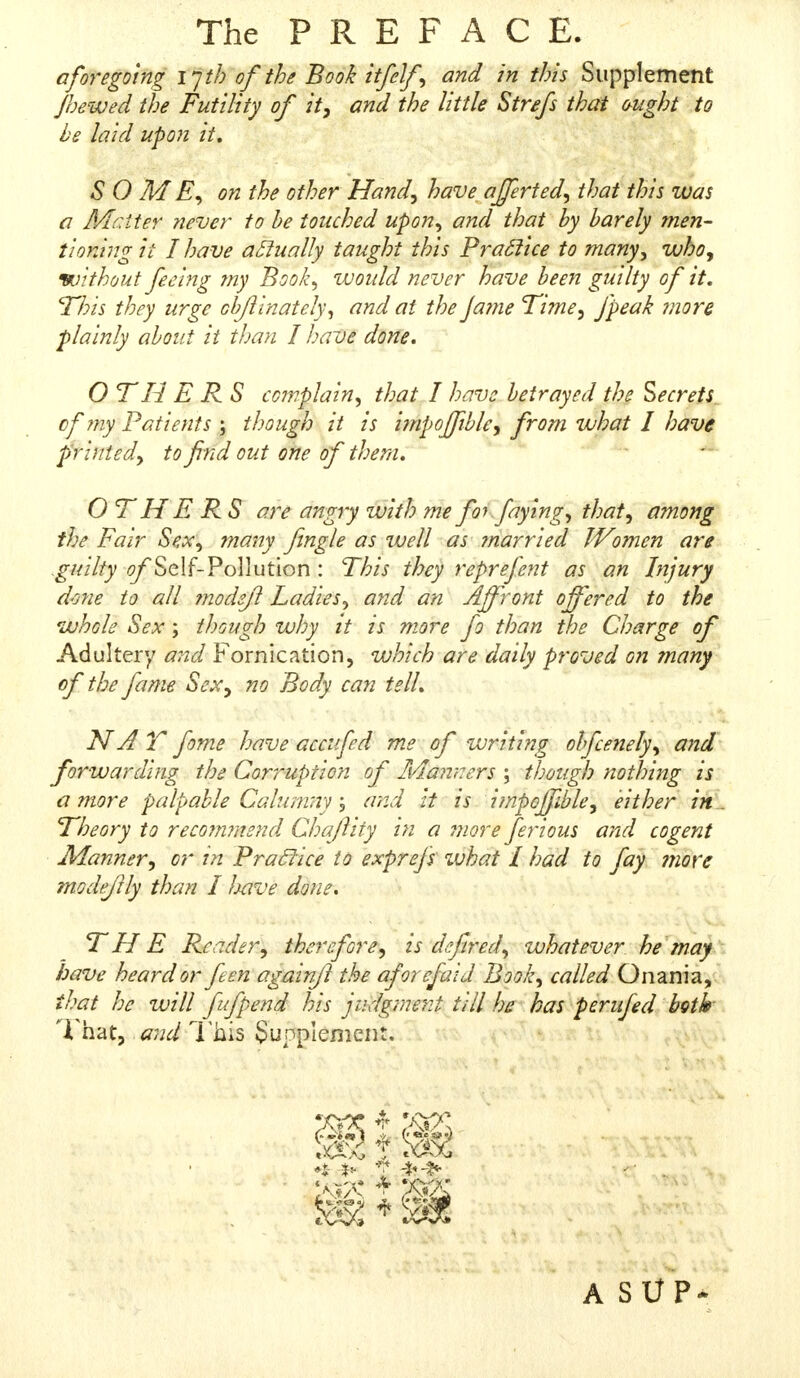 The PREFACE.
aforegoing 17th of the Book itſelf, and in this Supplement
ſhewed the Futility of it, and the little Streſs that ought to
be laid upon it.
SOME, on the other Hand, have aſſerted, that this was
a Matter never to be touched upon, and that by barely men-
tioning it I have actually taught this Practice to many, who,
without ſeeing my Book, would never have been guilty of it.
This they urge obſtinately, and at the ſame Time, ſpeak more
plainly about it than I have done.
OTHERS complain, that I have betrayed the Secrets
of my Patients; though it is impoſſible, from what I have
printed, to find out one of them.
OTHERS are angry with me for ſaying, that, among
the Fair Sex, many ſingle as well as married Women are
guilty of Self-Pollution: This they repreſent as an Injury
done to all modeſt Ladies, and an Affront offered to the
whole Sex; though why it is more ſo than the Charge of
Adultery and Fornication, which are daily proved on many
of the ſame Sex, no Body can tell.
NAY ſome have accuſed me of writing obſcenely, and
forwarding the Corruption of Manners; though nothing is
a more palpable Calumny; and it is impoſſible, either in
Theory to recommend Chaſtity in a more ſerious and cogent
Manner, or in Practice to expreſs what I had to ſay more
modeſtly than I have done.
THE Reader, therefore, is deſired, whatever he may
have heard or ſeen againſt the aforeſaid Book, called Onania,
that he will ſuſpend his judgment till he has peruſed both
That, and This Supplement.
A SUP-